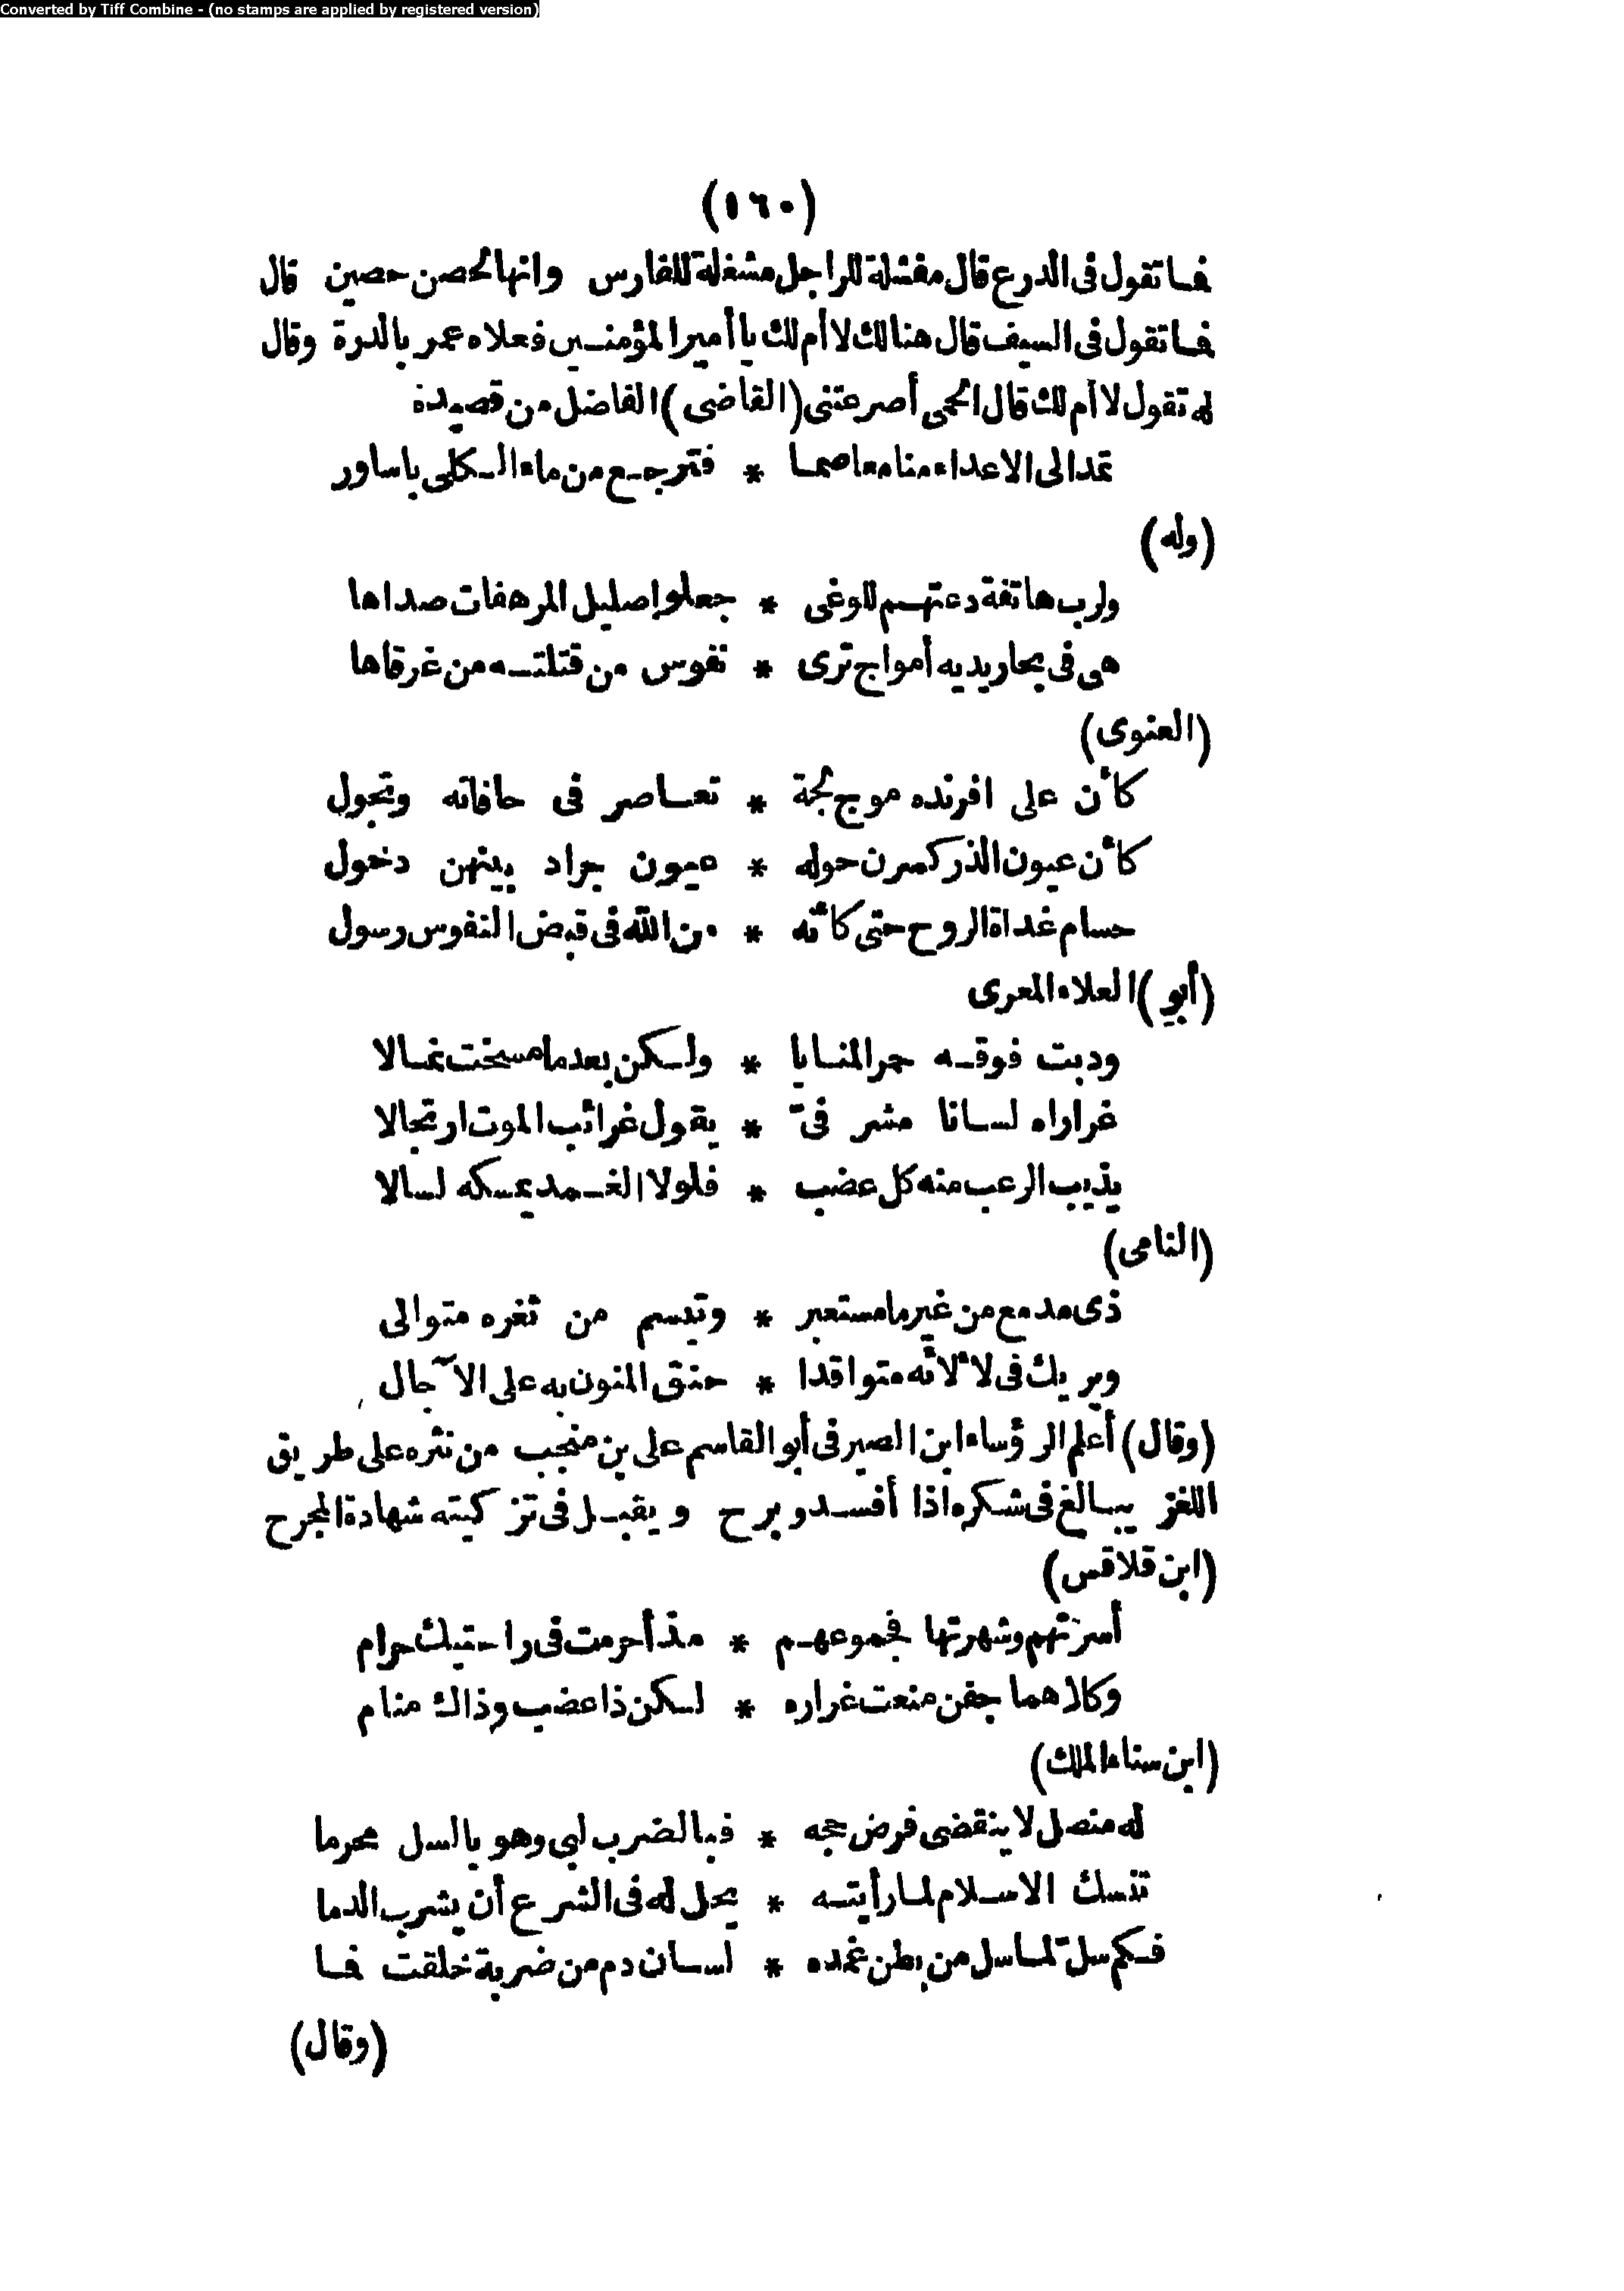 Converted by Tiff Combine - (no stamps are applied by registered version)
(١٦٠)
فما تقول فى الدرع قال مفشلة للراجل مشغلة للفارس وانها لحصن حصين قال
فما تقول فى السيف قال هنالك لا أم لك يا أمير المؤمنين فعلاه عمر بالدرة وقال
له تقول لا أم لك قال الحمى أصرعتنى (القاضى) الفاضل من قصيدة
تمد الى الاعداء منا معاصما * فترجع من ماء الكلى باساور
(وله)
ولرب هاتفة دعتهم للوغى * جعلوا صليل المرهفات صداها
هى فى بحار يديه أمواج ترى * نفوس من قتلته من غرقاها
(العنوى)
كأن على افرنده موج لجة * تعاصر فى حافاته وتجول
كأن عيون الذر كسرن حوله * عيون جراد بينهن دخول
حسام غداة الروح حتى كأنه * من الله فى قبض النفوس رسول
(أبو) العلاء المعرى
ودبت فوقه حمر المنايا * ولكن بعد ما مسخت نمالا
غراراه لسانا مشرفىّ * يقول غرائب الموت ارتجالا
يذيب الرعب منه كل عضب * فلولا الغمد يمسكه لسالا
(النامى)
ذى مدمع من غير ما مستعبر * وتبسم من ثغره متوالى
ويريك فى لألائه متواقدا * حنق المنون به على الآجال
(وقال) أعلم الرؤساء ابن الصيرفى أبو القاسم على بن منجب من نثره على طريق
اللغز يبالغ فى شكره اذا أفسد وبرح ويقبل فى تزكيته شهادة المجرح
(ابن قلاقس)
أسرتهم وشهرتها فجموعهم * مذ أحرمت فى راحتيك حرام
وكلاهما جفن منعت غراره * لكن ذا عضب وذاك منام
(ابن سناء الملك)
له منصل لا ينقضى فرض حجه * فبالضرب لبى وهو بالسل محرما
تنسك الاسلام لما رأيته * يحل له فى الشرع أن يشرب الدما
فكم سلّ لما سل من بطن غمده * لسان دم من ضربة خلقت فما
(وقال)